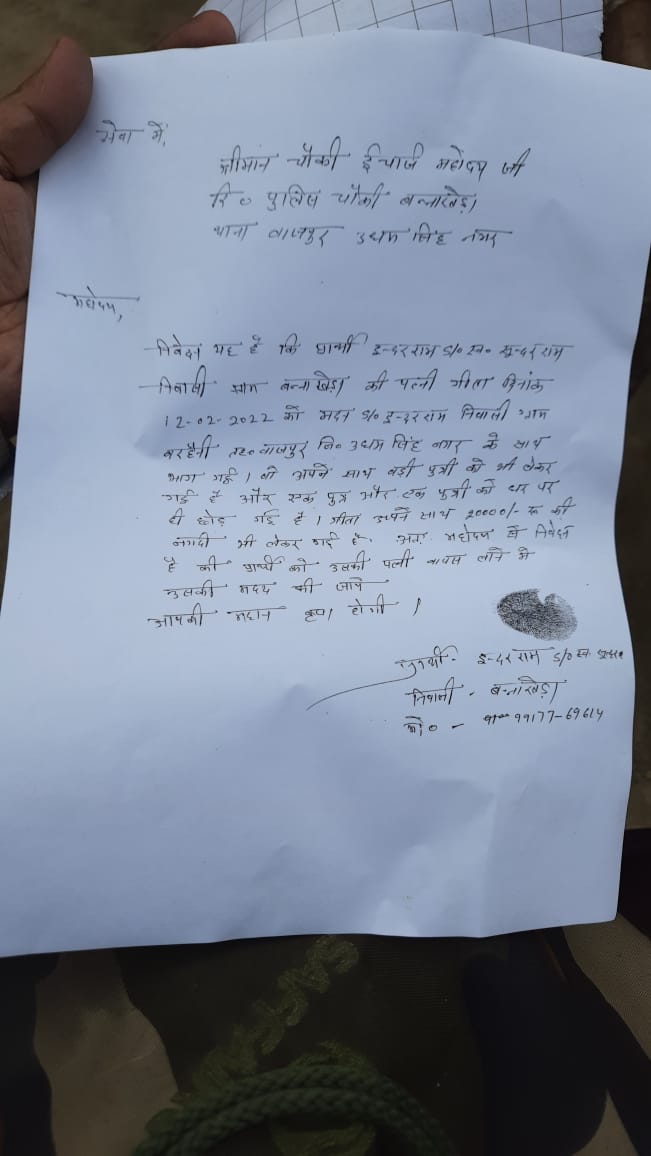 सेवा में,
श्रीमान चौकी ईंचार्ज महोदय जी
रि० पुलिस चौकी बन्नाखेड़ा
थाना बाजपुर उधम सिंह नगर
महोदय,
निवेदन यह है कि प्रार्थी इन्दर राम S/० स्व० सुन्दर राम
निवासी ग्राम बन्नाखेड़ा की पत्नी गीता दिनांक
12-02-2022 को मदन S/० इन्दर राम निवासी ग्राम
बरहैनी तह० बाजपुर जि० उधम सिंह नगर के साथ
भाग गई। वो अपने साथ बड़ी पुत्री को भी लेकर
गई है और एक पुत्र और एक पुत्री को घर पर
ही छोड़ गई है। गीता अपने साथ 20000/- रू की
नगदी भी लेकर गई है. अतः महोदय से निवेदन
है की प्रार्थी को उसकी पत्नी वापस लाने मे
उसकी मदद की जाये
आपकी महान कृपा होगी।
प्रार्थी- इन्दर राम S/० स्व. सुन्दर
निवासी - बन्नाखेड़ा
मो० - 99177-69614